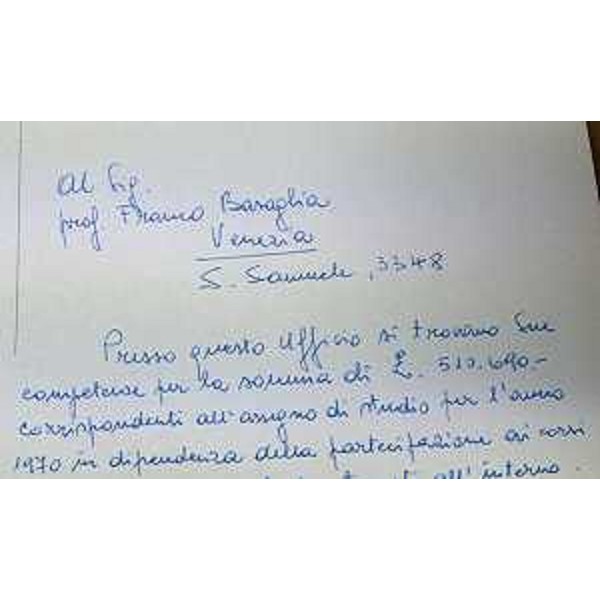 Al Sig.
prof Franco Basaglia
Venezia
S. Samuele, 3348
Presso questo Ufficio si trovano Sue
competenze per la somma di £. 510.690.-
corrispondenti all'assegno di studio per l'anno
1970 in dipendenza della partecipazione ai corsi
all'interno